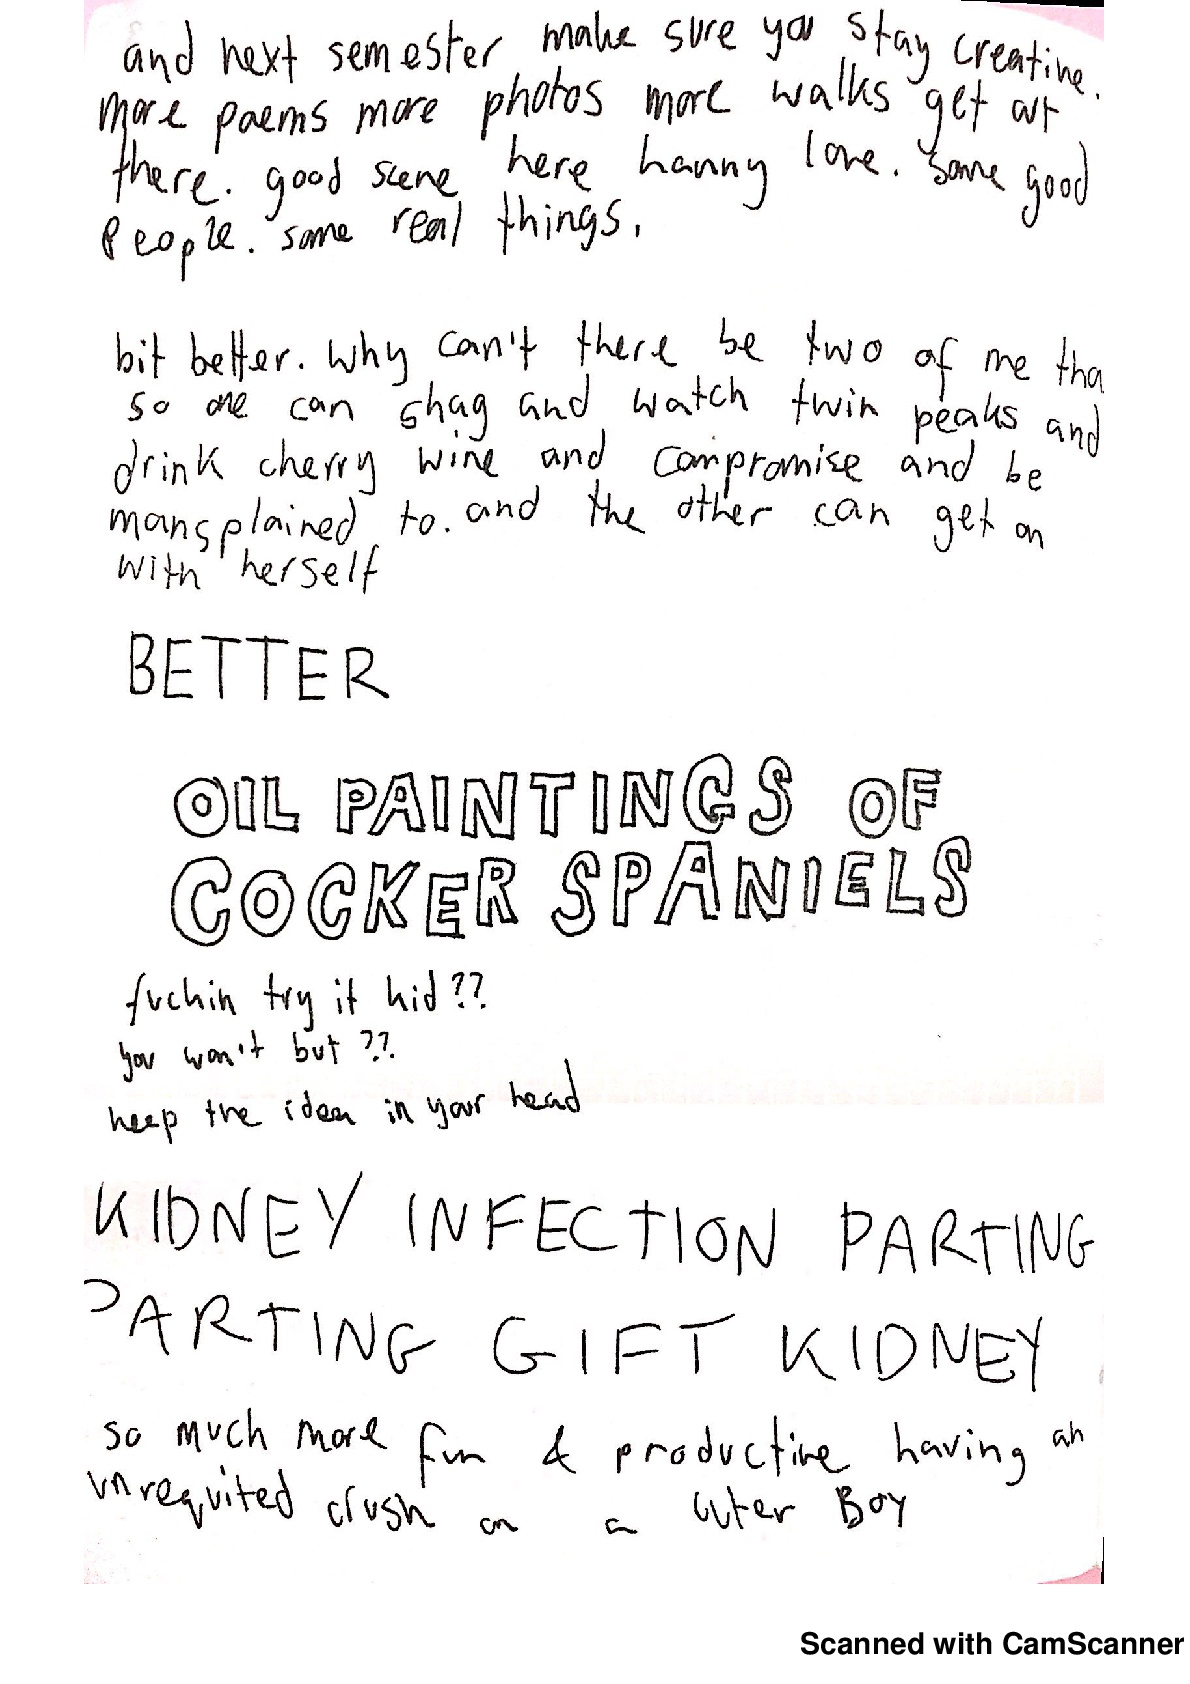 and next semester make sure you stay creative.
more poems more photos more walks get out
there. good scene here hanny love. some good
people. some real things.
bit better. why can't there be two of me tha
so one can shag and watch twin peaks and
drink cherry wine and compromise and be
mansplained to. and the other can get on
with herself
BETTER
OIL PAINTINGS OF
COCKER SPANIELS
fuckin try it kid??
you won't but ??
keep the idea in your head
KIDNEY INFECTION PARTING
PARTING GIFT KIDNEY
so much more fun & productive having an
unrequited crush on a cuter Boy
Scanned with CamScanner